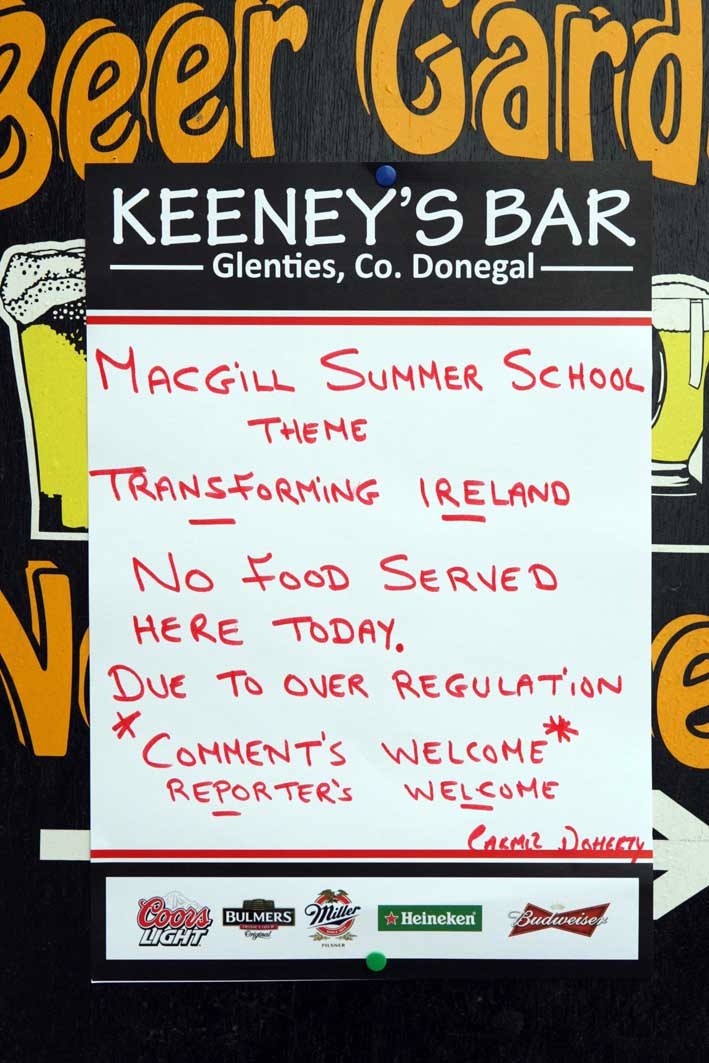 Beer Gard
KEENEY'S BAR
Glenties, Co. Donegal
MACGILL SUMMER SCHOOL
THEME
TRANSFORMING IRELAND
NO FOOD SERVED
HERE TODAY.
DUE TO OVER REGULATION
*COMMENT'S WELCOME*
REPORTER'S WELCOME
DOHERTY
Coors LIGHT
BULMERS Original
Miller PILSNER
Heineken
Budweiser